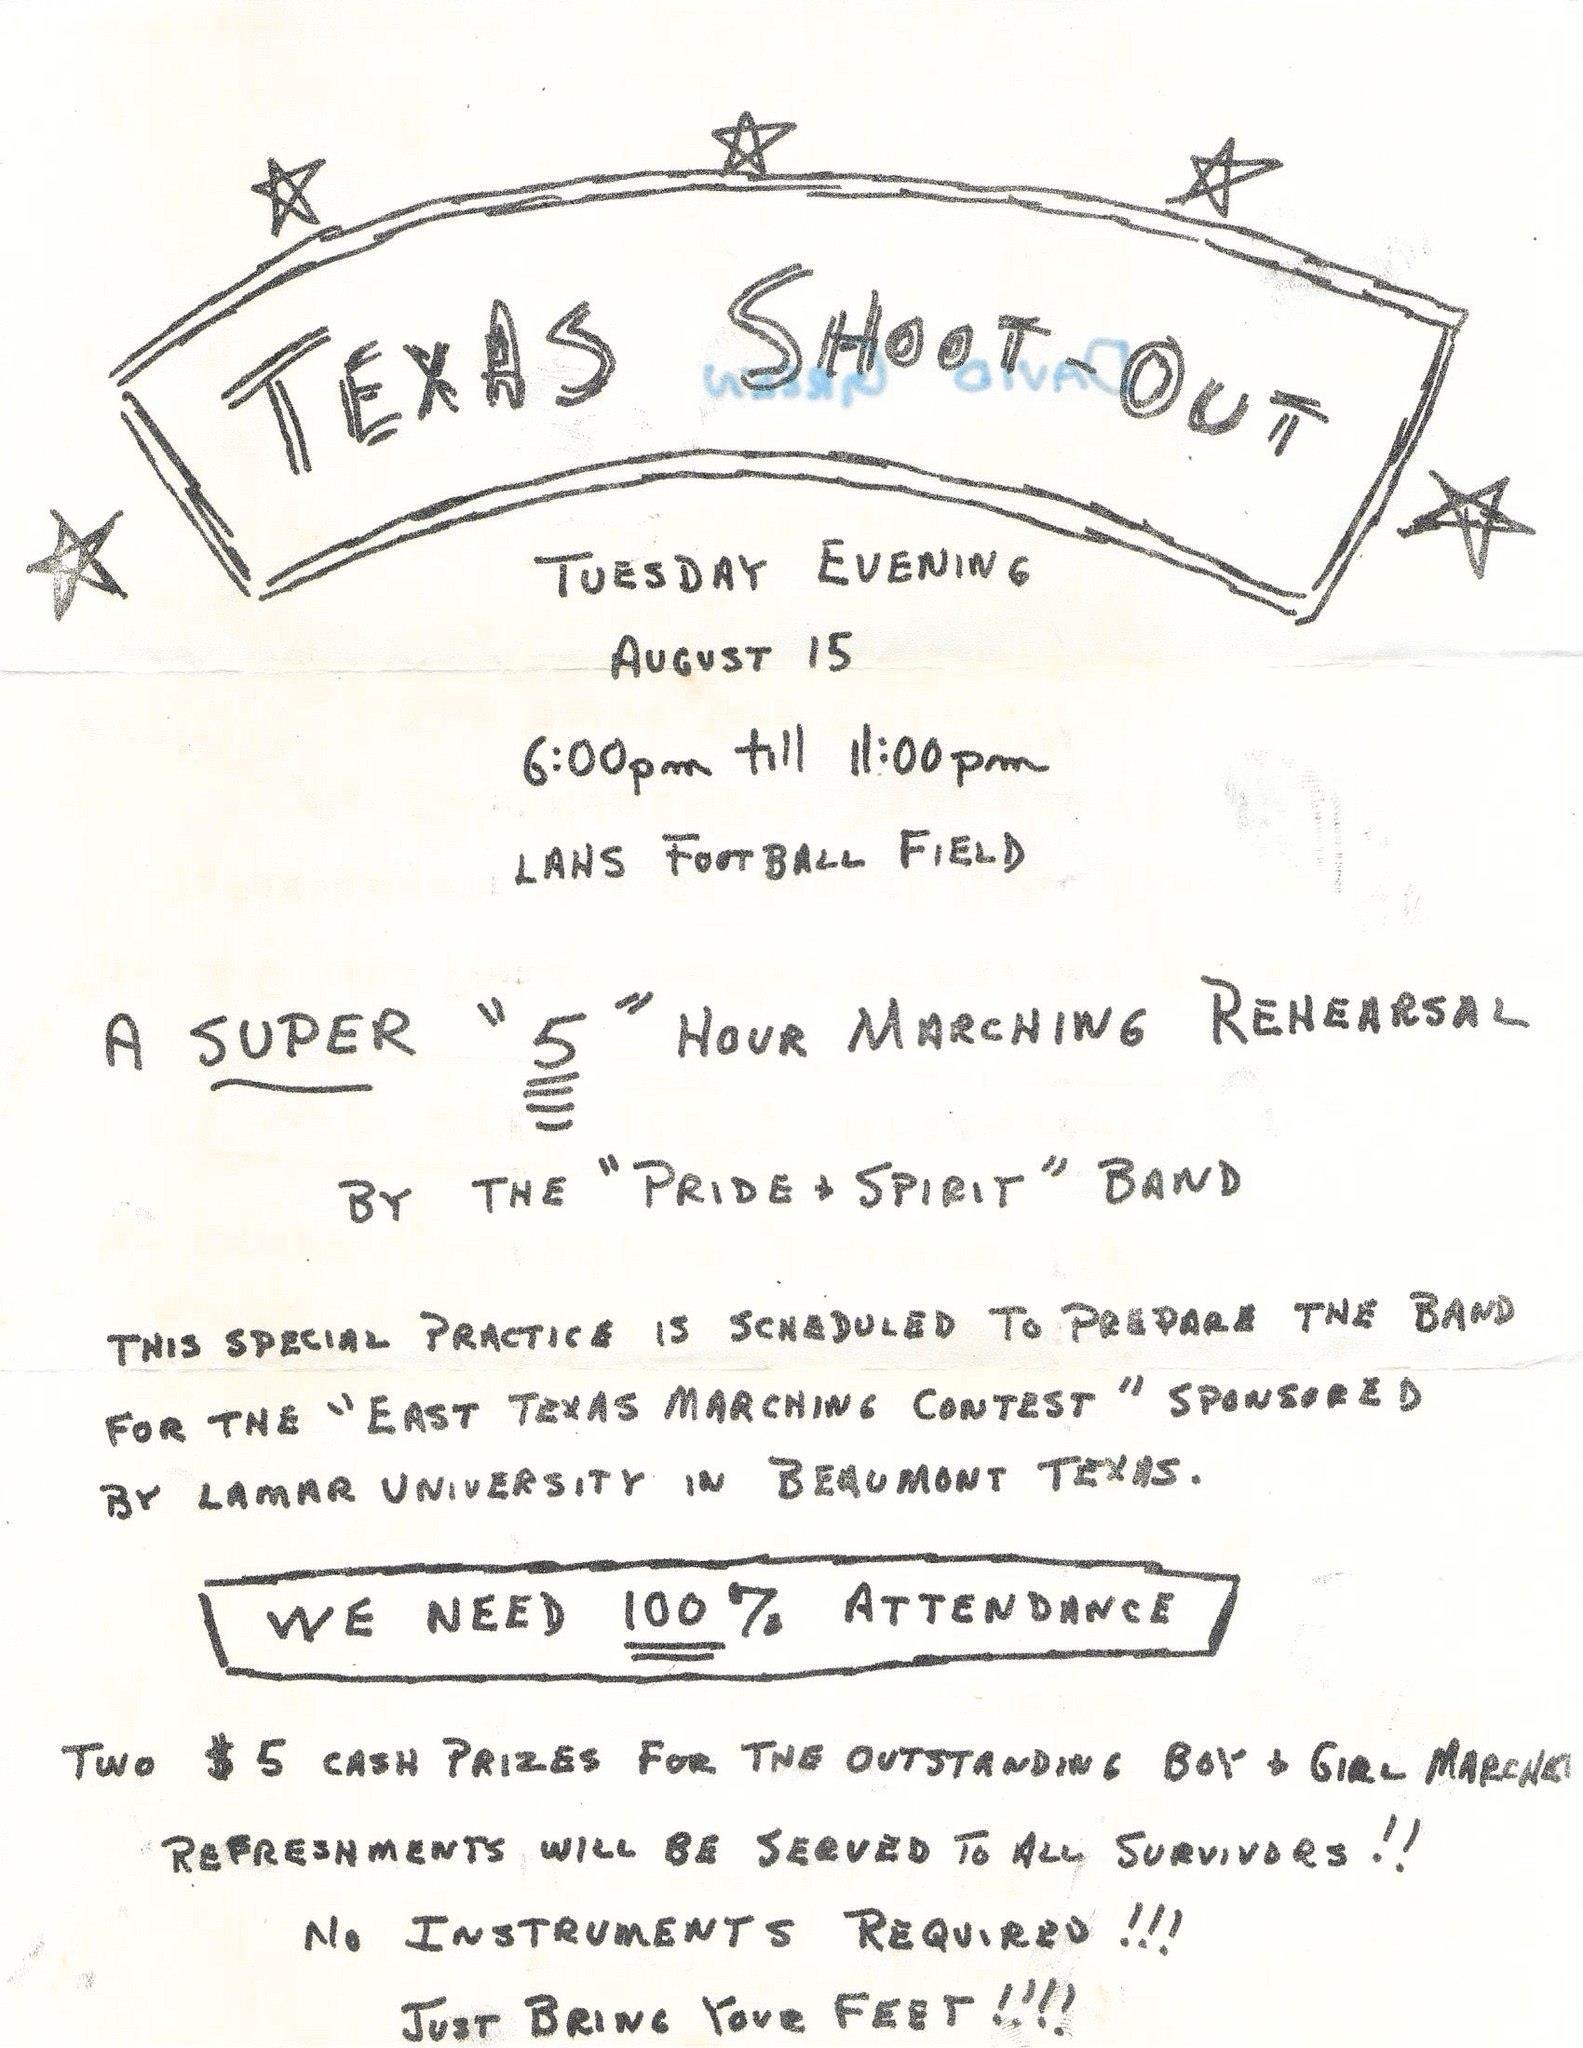 TEXAS SHOOT-OUT
DAVID GREEN
TUESDAY EVENING
AUGUST 15
6:00pm till 11:00pm
LAHS FOOTBALL FIELD
A SUPER "5" HOUR MARCHING REHEARSAL
BY THE "PRIDE + SPIRIT" BAND
THIS SPECIAL PRACTICE IS SCHEDULED TO PREPARE THE BAND
FOR THE "EAST TEXAS MARCHING CONTEST" SPONSORED
BY LAMAR UNIVERSITY IN BEAUMONT TEXAS.
WE NEED 100% ATTENDANCE
TWO $5 CASH PRIZES FOR THE OUTSTANDING BOY + GIRL MARCHER
REFRESHMENTS WILL BE SERVED TO ALL SURVIVORS!!
NO INSTRUMENTS REQUIRED!!!
JUST BRING YOUR FEET!!!!